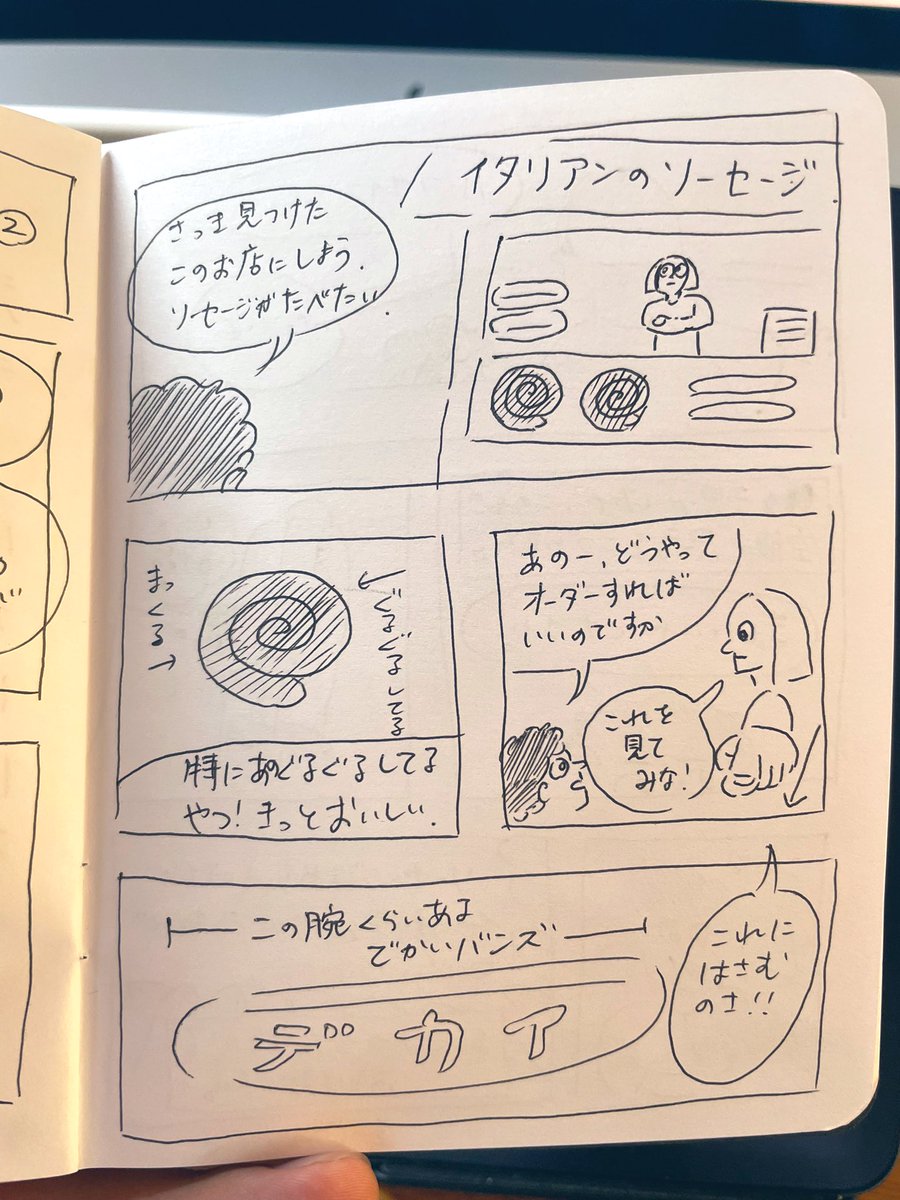 イタリアンのソーセージ
さっき見つけた
このお店にしよう.
ソーセージがたべたい.
まっくろ→
←ぐるぐるしてる
特にあのぐるぐるしてる
やつ!きっとおいしい.
あのー,どうやって
オーダーすれば
いいのですか
これを
見て
みな!
この腕くらいある
でかいバンズ
デカイ
これに
はさむ
のさ!!
②